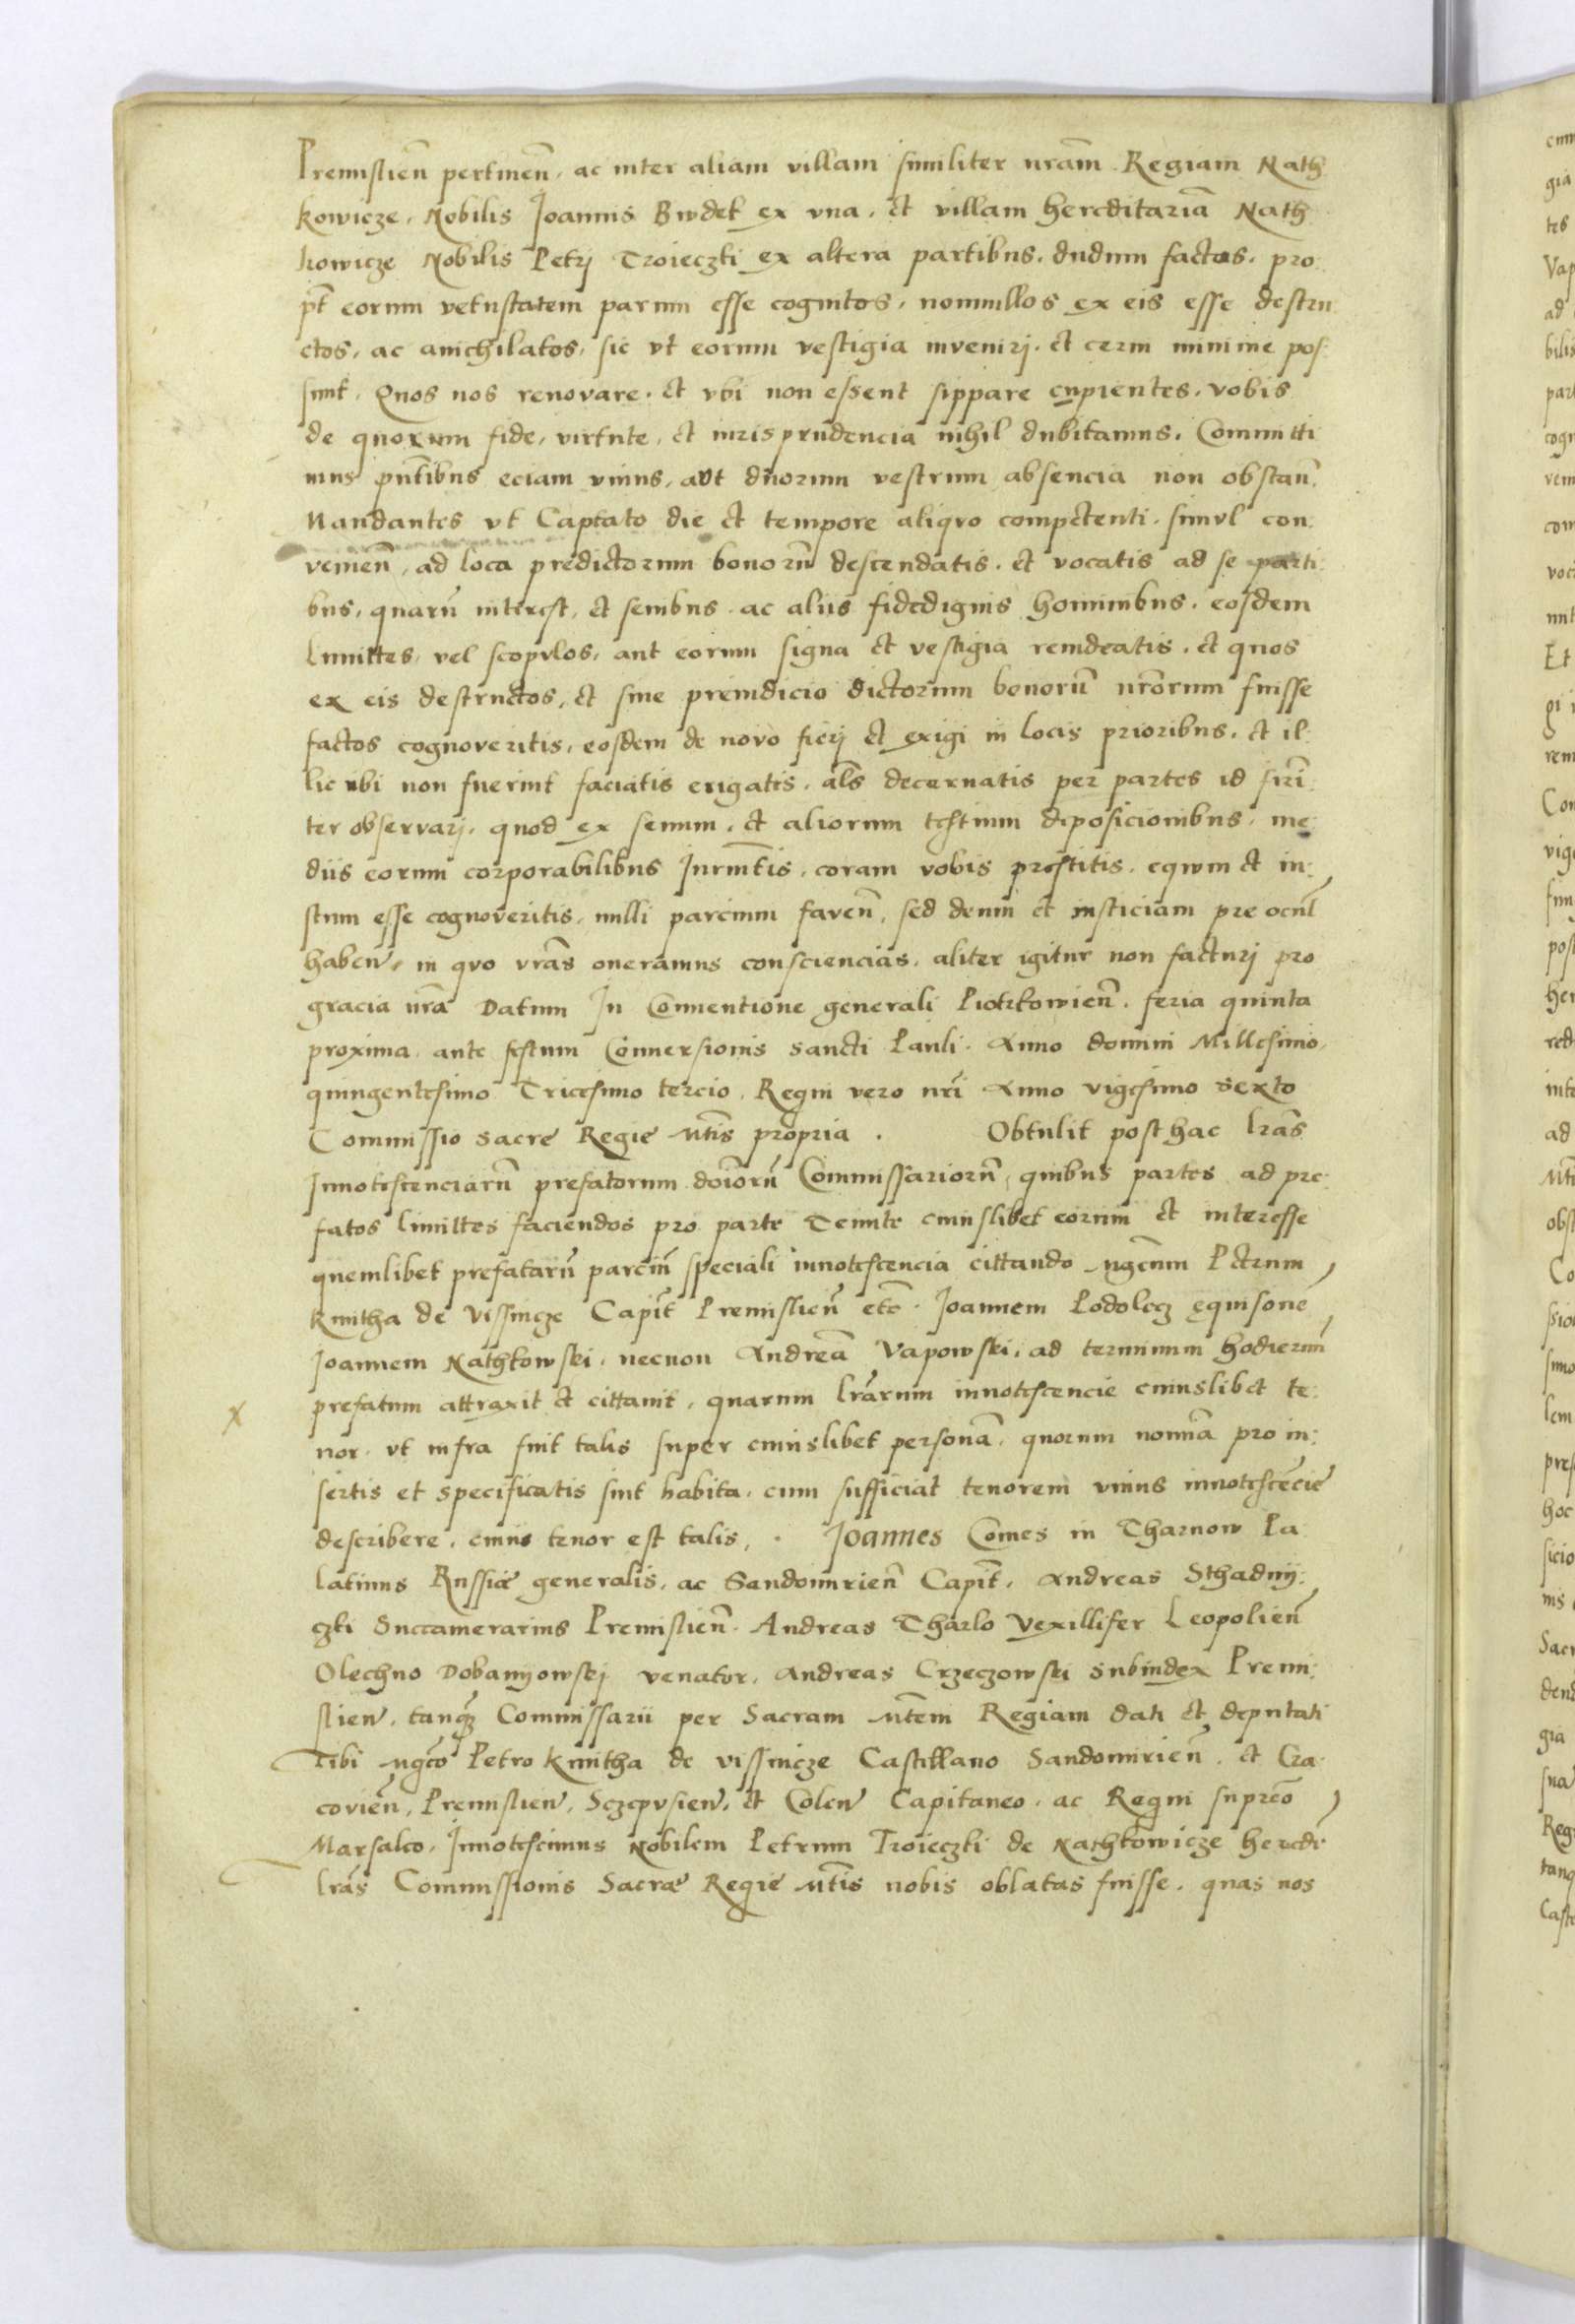 Premislien̄ pertinen̄, ac inter aliam villam similiter nr̄am Regiam Nath
kowicze, Nobilis Joannis Bwdek ex vna, et villam hereditariā Nath
kowicze Nobilis Petrj Troieczki ex altera partibus, dudum factos, pro
pt̄ eorum vetustatem parum esse cognitos, nonnullos ex eis esse destru
ctos, ac anichilatos, sic vt eorum vestigia invenirj, et cerni minime pos
sint, Quos nos renovare, et vbi non essent sippare cupientes, vobis
de quorum fide, virtute, et iurisprudencia nihil dubitamus, Committi
mus pn̄tibus eciam vnius, aut duorum vestrum absencia non obstan̄,
Mandantes vt Captato die et tempore aliqvo competenti, simvl con:
venien̄, ad loca predictorum bonorū descendatis, et vocatis ad se parti:
bus, quarū interest, et senibus ac aliis fidedignis hominibus, eosdem
Limittes, vel scopvlos, aut eorum signa et vestigia reuideatis, et quos
ex eis destructos, et sine preiudicio dictorum bonorū nr̄orum fuisse
factos cognoveritis, eosdem de novo fierj et exigi in locis prioribus, et il
lic ubi non fuerint faciatis erigatis, als̄ decernatis per partes id firi
ter observarj, quod ex senum, et aliorum testium deposicionibus, me:
diis eorum corporabilibus Jurmt̄is, coram vobis prestitis, eqwm et iu:
stum esse cognoveritis, nulli parcium faven̄, sed deum et iusticiam pre ocul̄
haben̄, in qvo vr̄as oneramus consciencias, aliter igitur non facturj pro
gracia nr̄a Datum In Conuentione generali Piotrkowien̄, feria quinta
proxima ante festum Conuersionis sancti Pauli. Anno domini Millesimo
quingentesimo Tricesimo tercio, Regni vero nr̄i Anno vigesimo sexto
Commissio sacre Regie Mt̄is propria . Obtulit post hac lr̄as
Innotescenciarū prefatorum doīorū Commissariorū, quibus partes ad pre:
fatos limittes faciendos pro parte Tenute cuiuslibet eorum et interesse
quemlibet prefatarū parciū speciali innotescencia cittando Mgcūm Petrum
Kmitha de vissnicze Capit̄ Premislien̄ etc̄. Joannem Podolecz equisonē
Joannem Nathkowski, necnon Andreā Vapowski, ad terminum hodiernū
prefatum attraxit et cittauit, quarum lr̄arum innotescencie cuiuslibet te:
nor vt infra fuit talis super cuiuslibet personā, quorum nomīa pro in:
sertis et specificatis sint habita, cum sufficiat tenorem vnius innotescēcie
describere, cuius tenor est talis, . Joannes Comes in Tharnow Pa
latinus Russiæ generalis, ac Sandomirien̄ Capit̄, Andreas Sthadnij:
czki Succamerarius Premislien̄. Andreas Tharlo Vexillifer Leopolien̄
Olechno Dobanyowskj venator, Andreas Crzeczowski subiudex Premi:
slien̄, tanq̄ Commissarii per Sacram Mt̄em Regiam dati et deputati
Tibi Mgcō Petro Kmitha de vissnicze Castellano Sandomirien̄, et Cra
covien̄, Premislien̄, Sczepvsien̄, et Colen̄ Capitaneo, ac Regni supreō
Marsalco, Innotescimus Nobilem Petrum Troieczki de Nathkowicze heredē
lr̄as Commissionis Sacræ Regie Mt̄is nobis oblatas fuisse, quas nos